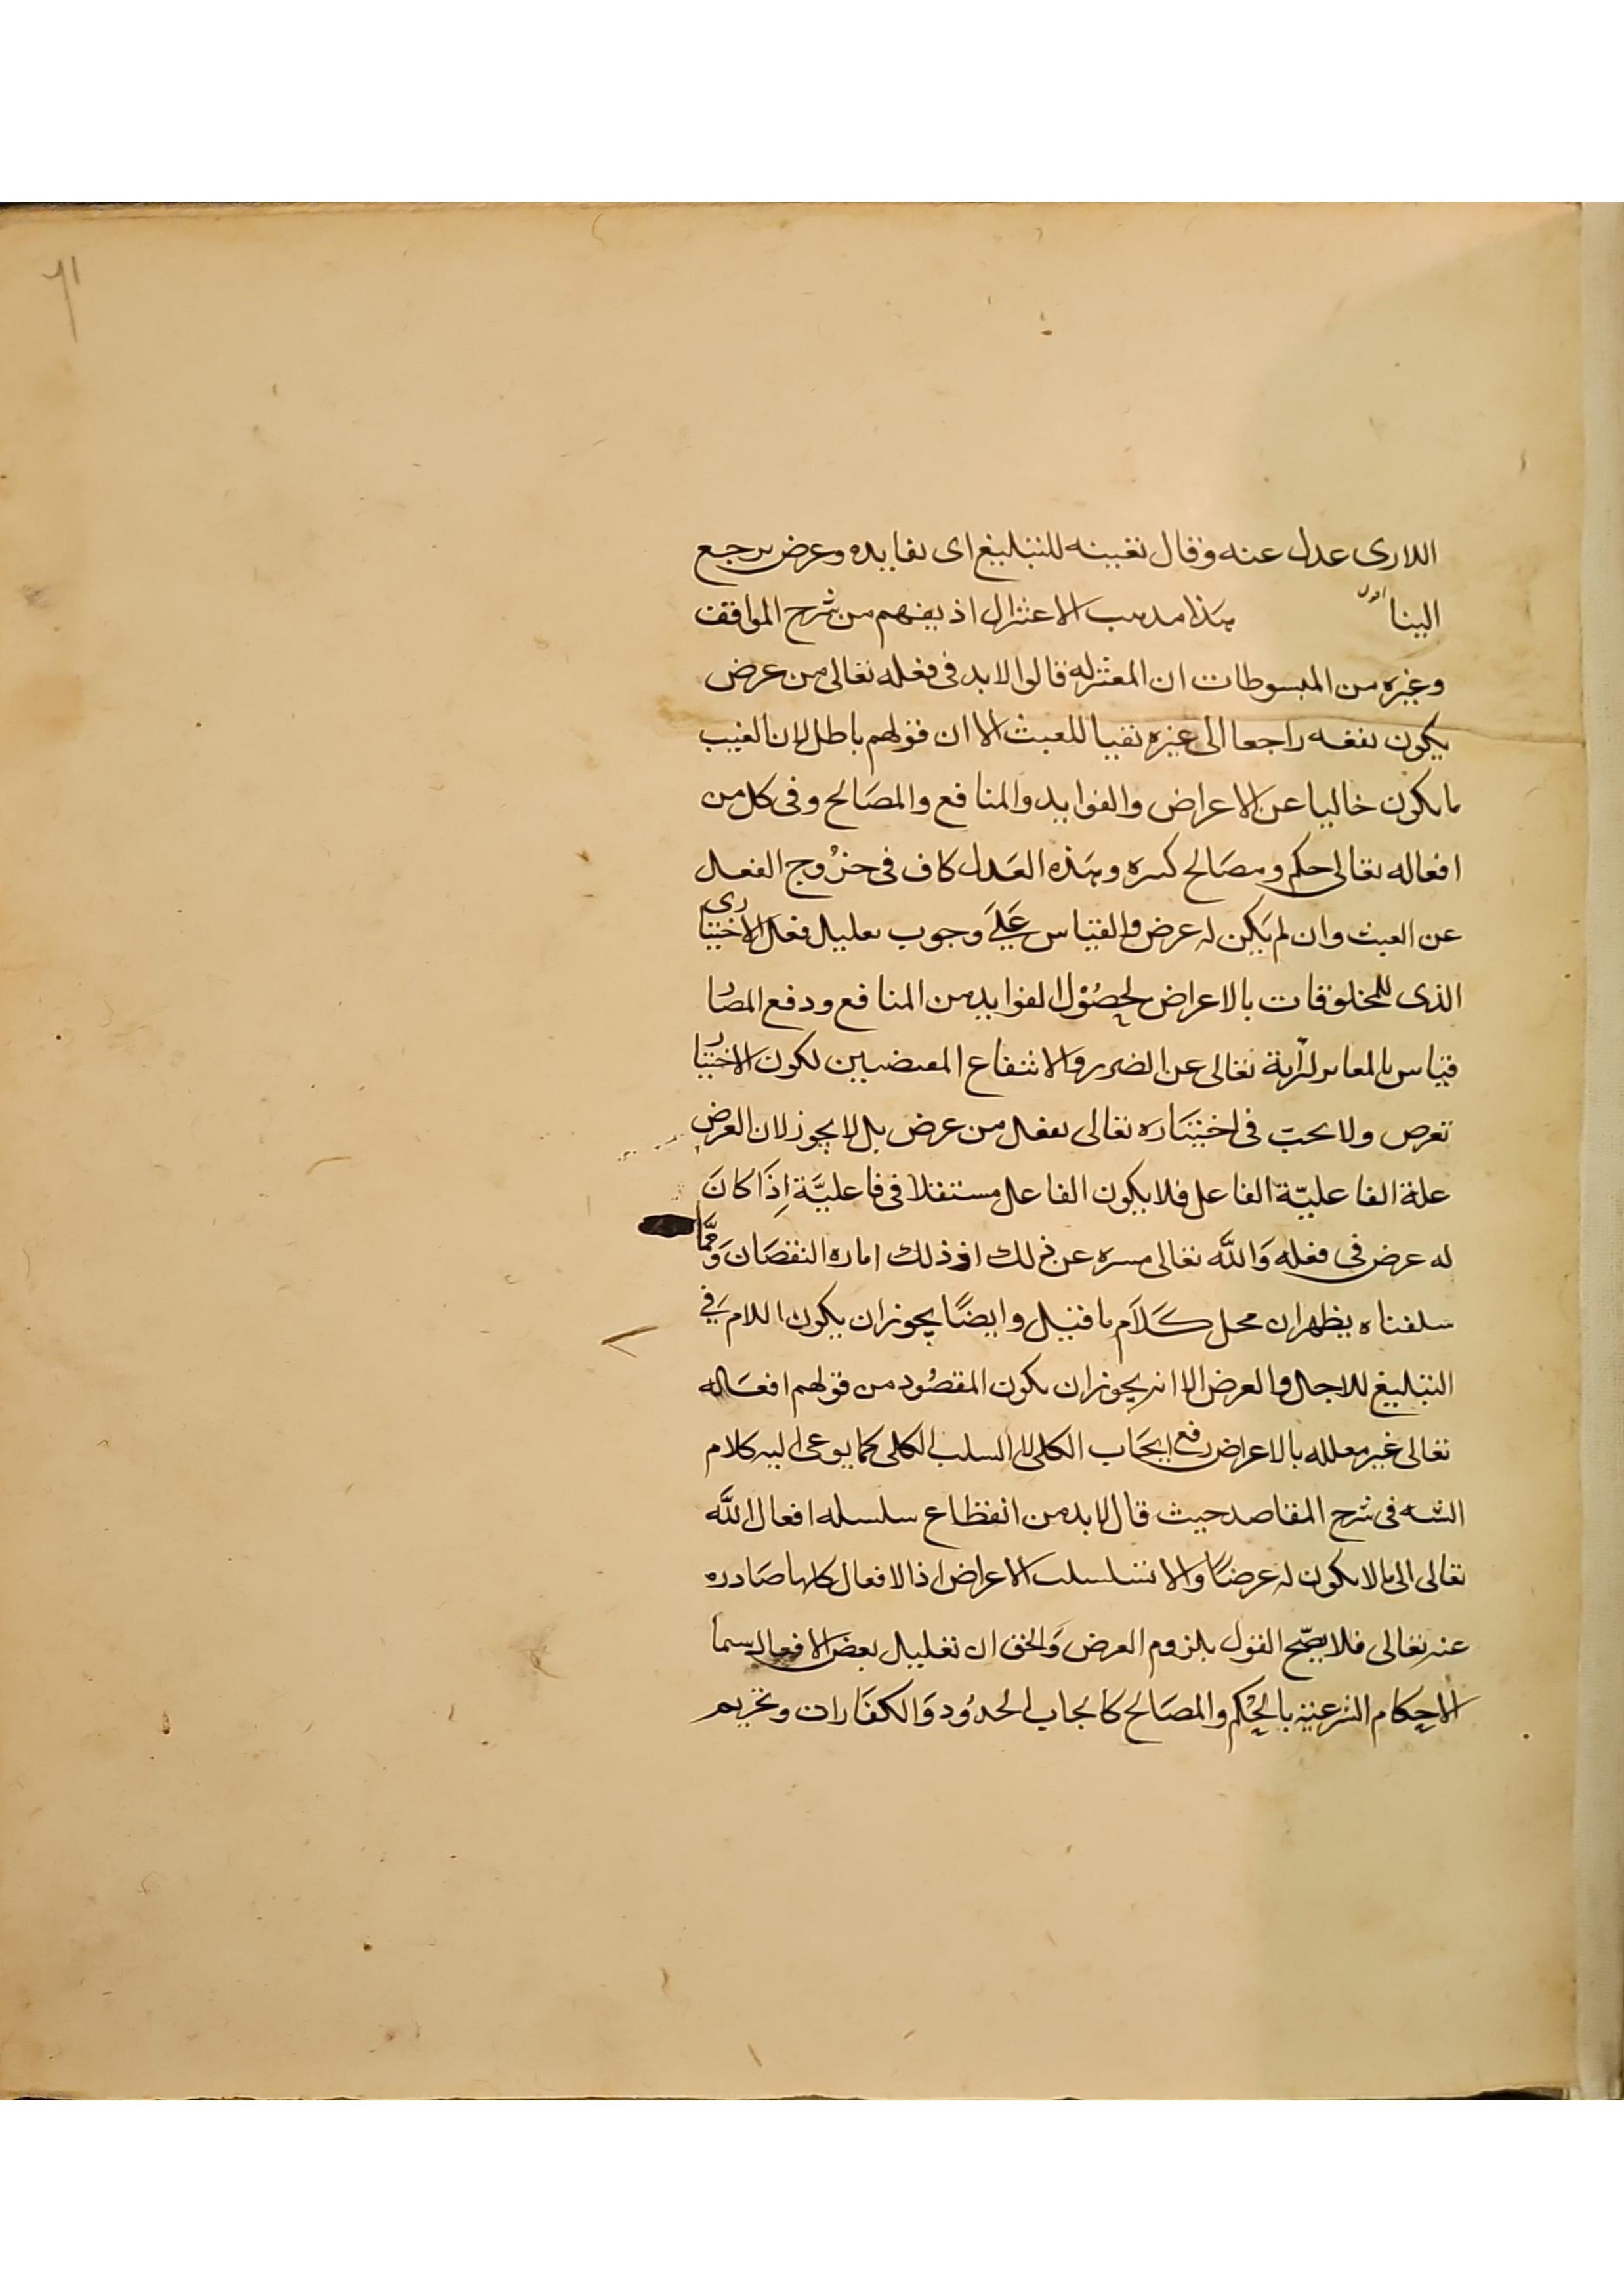 ٦١
اللارى عدل عنه وقال تعيينه للتبليغ اى لفايده وعرض يرجع
الينا اقول هذا مذهب الاعتزال اذ يفهم من شرح المواقف
وغيره من المبسوطات ان المعتزله قالوا لابد فى فعله تعالى من عرض
يكون نفعه راجعا الى غيره نفيا للعبث الا ان قولهم باطل لان العبث
ما يكون خاليا عن الاعراض والفوايد والمنافع والمصَالح وفى كل من
افعاله تعالى حكم ومصَالح كثيره وهذه العَدل كاف فى خرُوج الفعل
عن العبث وان لم يَكن له عرض والقياس عَلَى وجوب تعليل فعل الاختيارى
الذى للمخلوقات بالاعراض لحصُوْل الفوايد من المنافع ودفع المضار
قياس بالمعاير لبرآية تعالى عن الضرر والانتفاع المقتضيين لكون الاختيار
تعرض ولا يجبّ فى اختيَاره تعالى لفعل من عرض بل لا يجوز لان العرض
علة الفاعليّة الفاعل فلا يكون الفاعل مستقلا فى فاعليَّة اِذَا كانَ
له عرض فى فعله وَاللَّه تعالى منزه عن ذلك اذ ذلك اماره النقصَان وَممَّا
سلفناه يظهر ان محل كَلَام ما قيل وايضًا يجوز ان يكون اللام فى
التبليغ للاجل والعرض الا انه يجوز ان يكون المقصُود من قولهم افعَاله
تعالى غير معلله بالاعراض رفع ايجَاب الكلى لا السلب الكلى كما يوعى اليه كلام
الشه فى شرح المقاصد حيث قال لابد من انقطاع سلسله افعال اللَّه
تعالى الى ما لا يكون له عرضًا والا تسلسلت الاعراض اذ الافعال كلها صَادره
عنه تعالى فلا يصّح القول بلزوم العرض وَالحق ان تعليل بعض الافعال سما
الاحكام الشرعية بالحِكم والمصَالح كايجاب الحدُود وَالكفَارات وتحريم